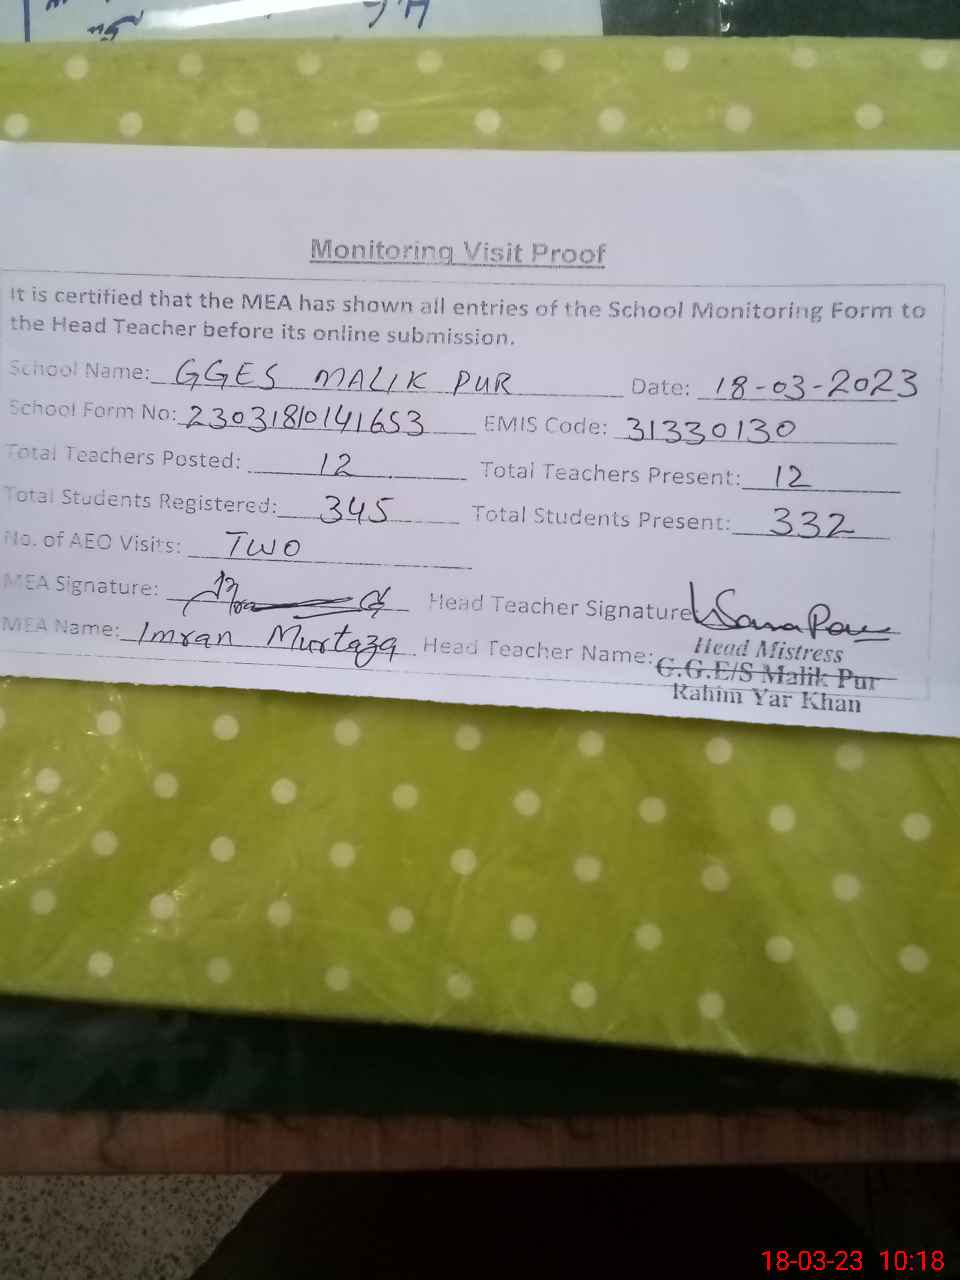 Monitoring Visit Proof
It is certified that the MEA has shown all entries of the School Monitoring Form to
the Head Teacher before its online submission.
School Name: GGES MALIK PUR Date: 18-03-2023
School Form No: 23031810141653 EMIS Code: 31330130
Total Teachers Posted: 12 Total Teachers Present: 12
Total Students Registered: 345 Total Students Present: 332
No. of AEO Visits: TWO
MEA Signature: Head Teacher Signature
MEA Name: Imran Murtaza Head Teacher Name:
Head Mistress
G.G.E/S Malik Pur
Rahim Yar Khan
18-03-23 10:18